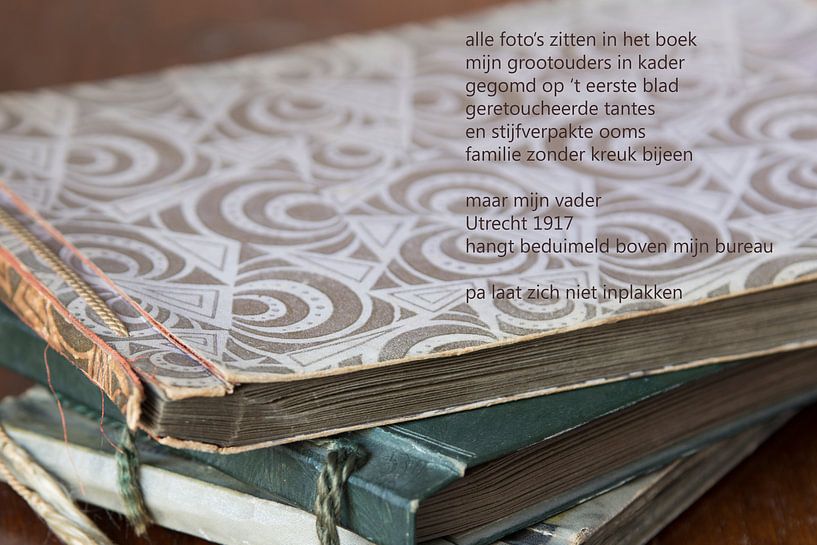 alle foto’s zitten in het boek
mijn grootouders in kader
gegomd op ’t eerste blad
geretoucheerde tantes
en stijfverpakte ooms
familie zonder kreuk bijeen

maar mijn vader
Utrecht 1917
hangt beduimeld boven mijn bureau

pa laat zich niet inplakken